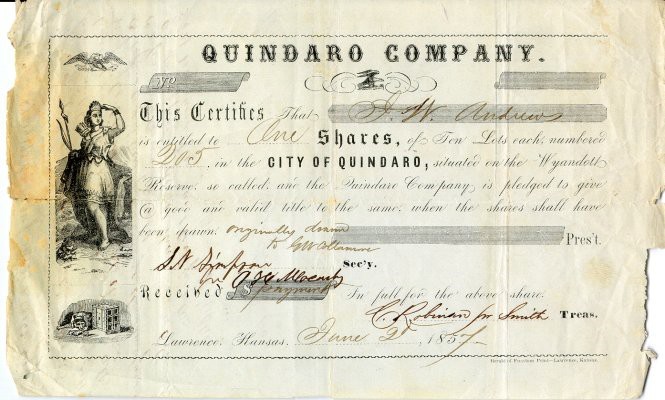 QUINDARO COMPANY.
No
This Certifies That J. W. Andrews
is entitled to One Shares, of Ten Lots each, numbered
205, in the CITY OF QUINDARO, situated on the Wyandott
Reserve, so called, and the Quindaro Company is pledged to give
a good and valid title to the same, when the shares shall have
been drawn. originally drawn
to Pres't.
S. N. Simpson Sec'y.
Received $ payment In full for the above share.
C Robinson Smith Treas.
Lawrence, Kansas, June 2 1857
Herald of Freedom Print—Lawrence, Kansas.